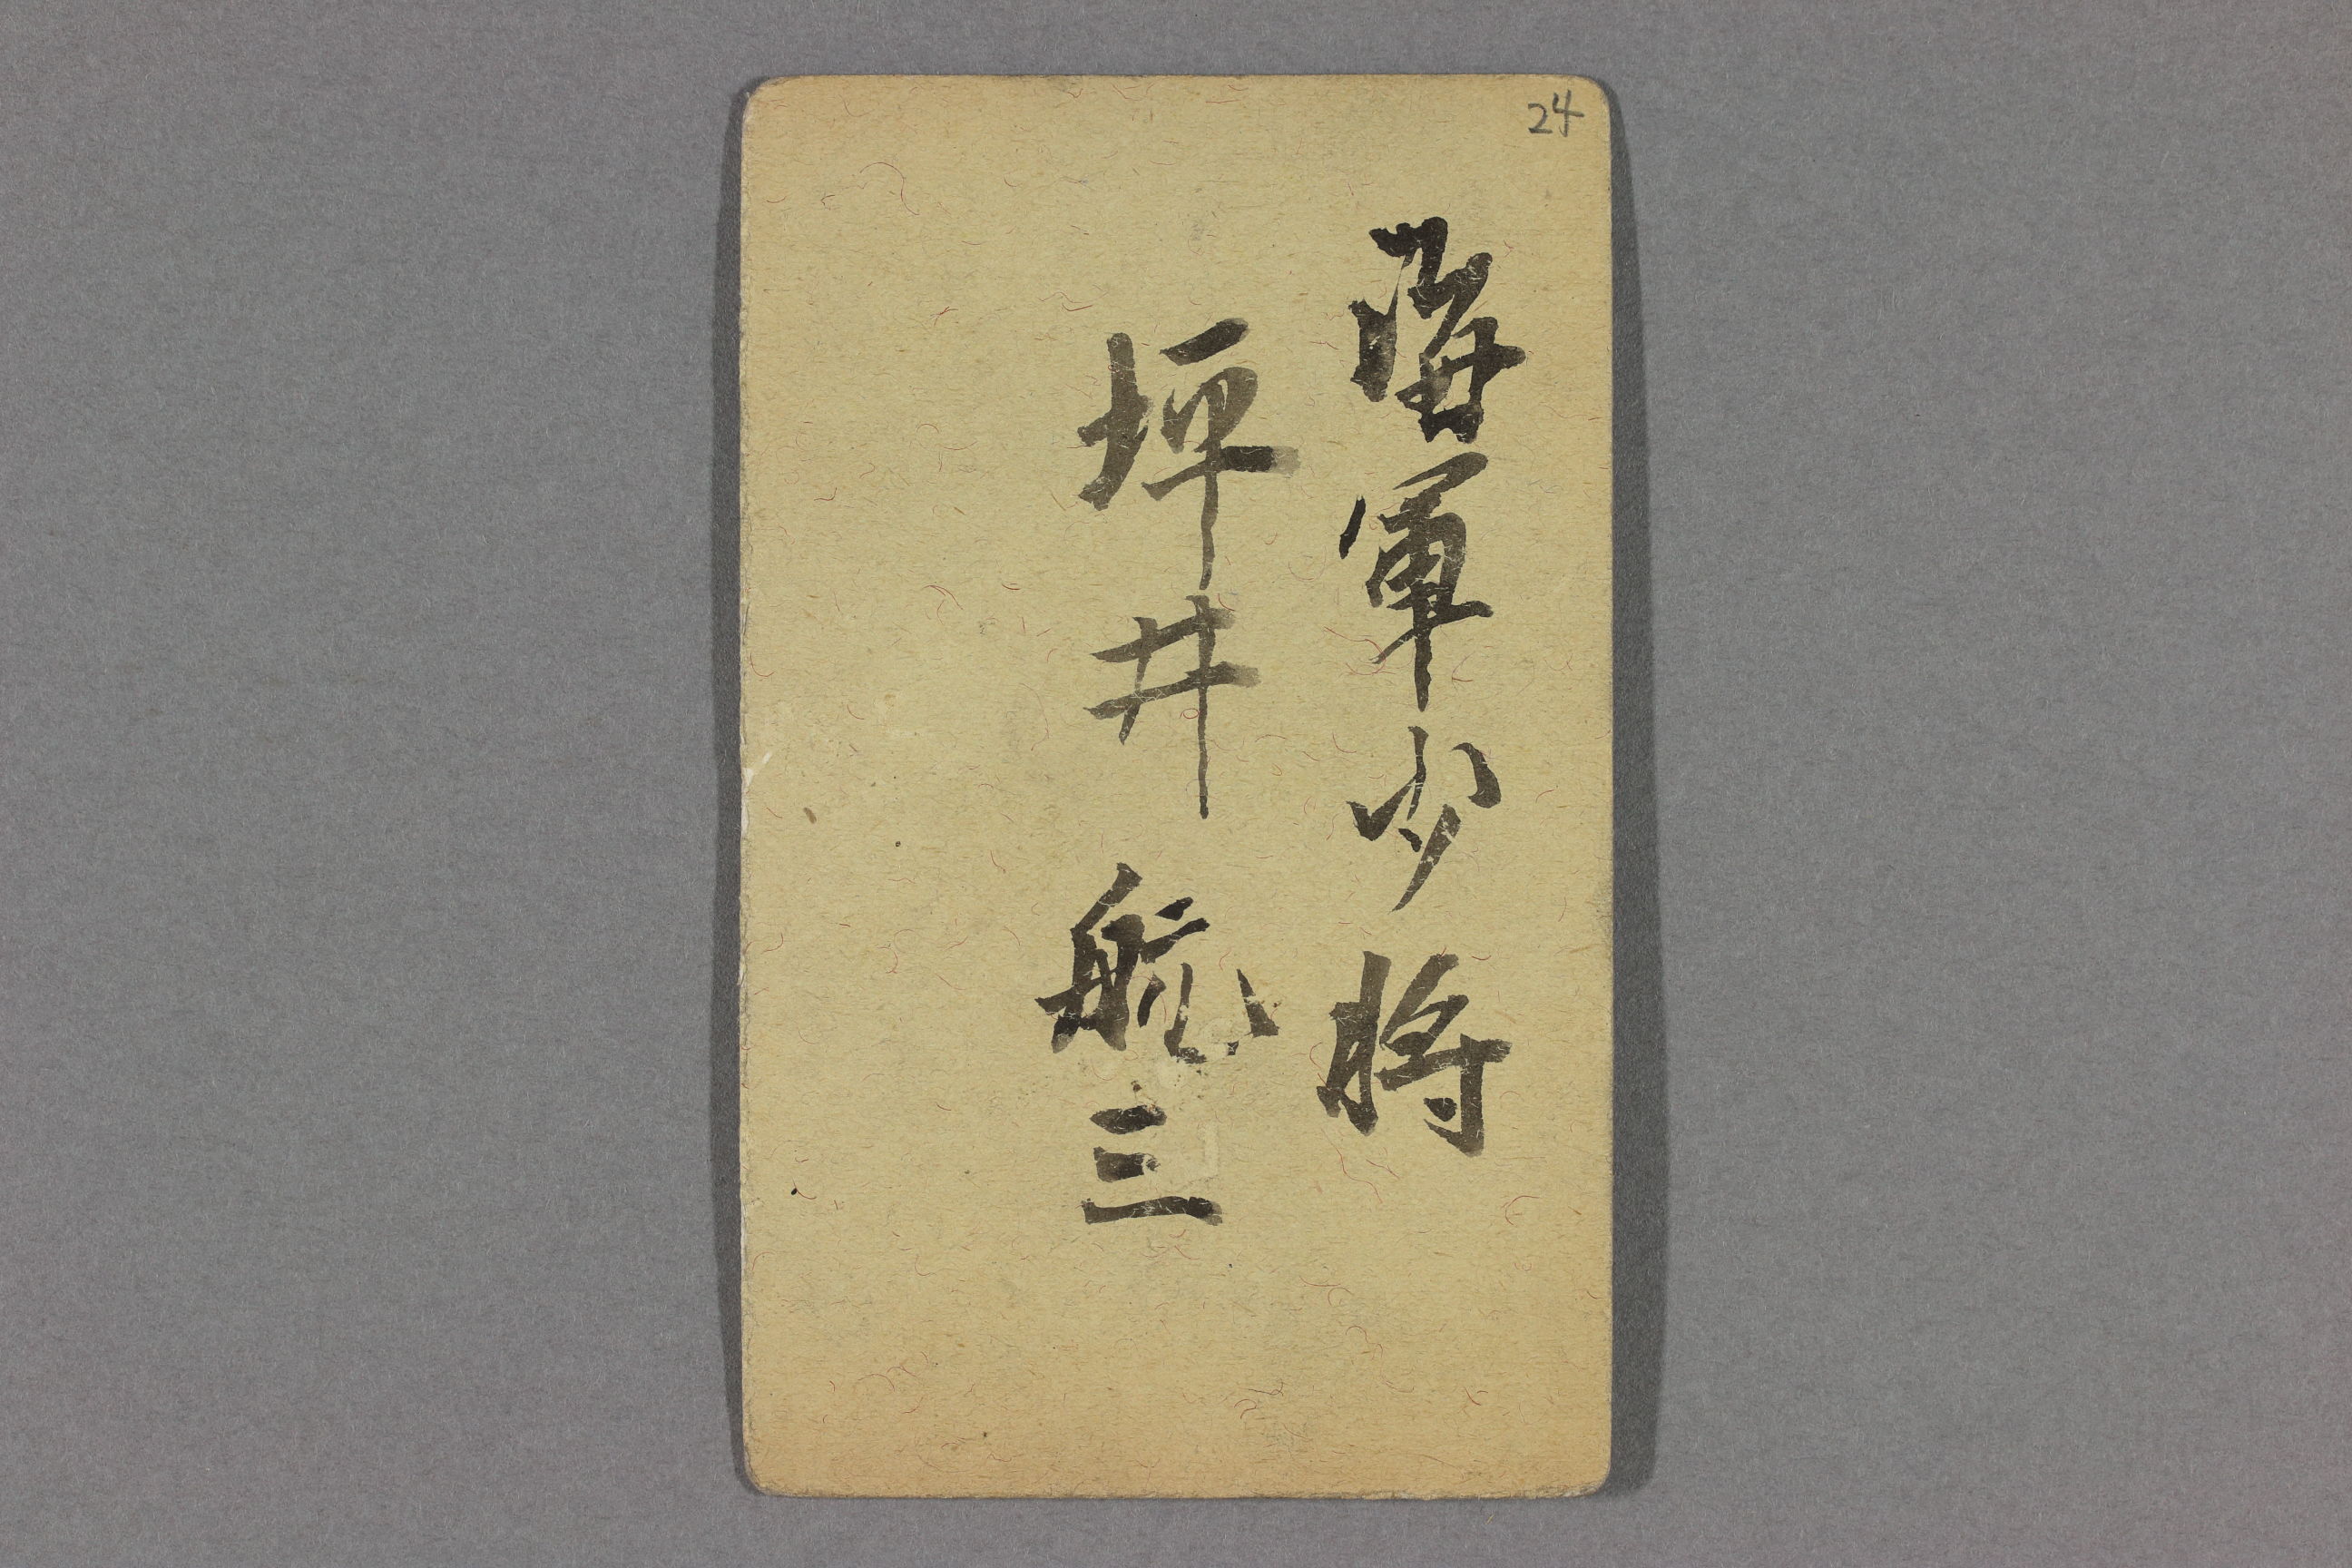 24
海軍少將
坪井航三